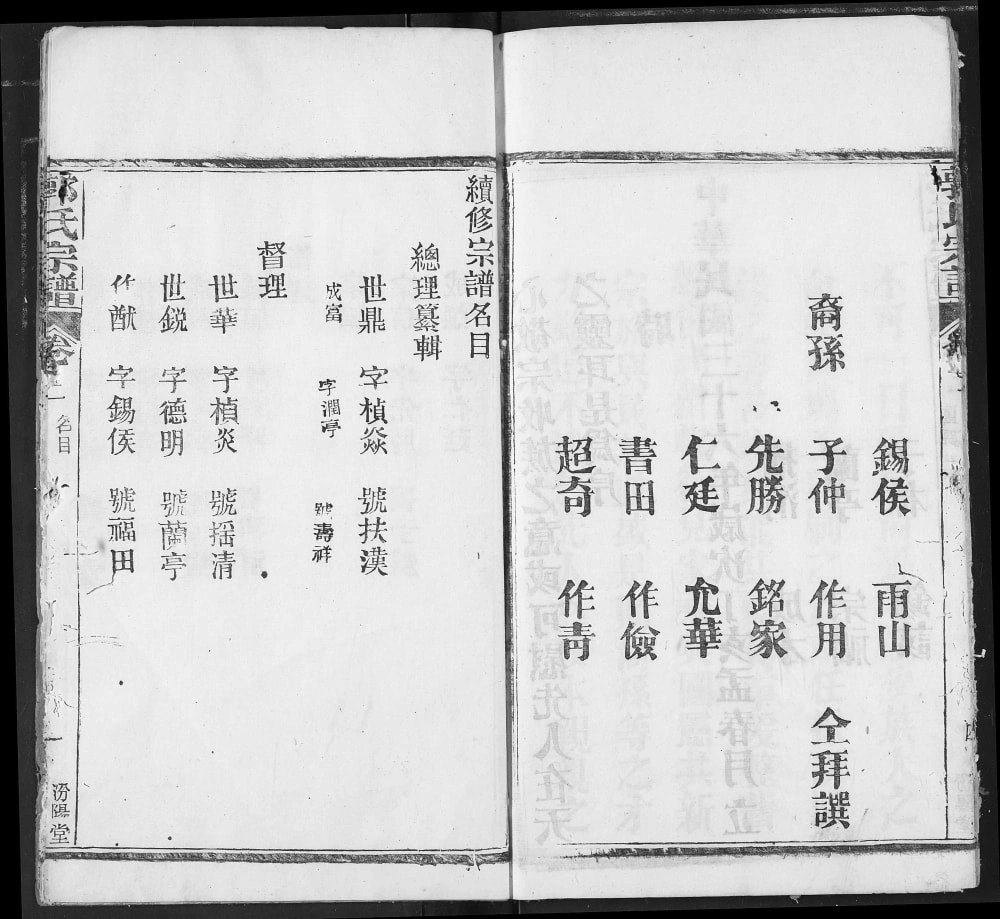 錫侯 雨山
裔孫 子仲 作用 仝拜譔
先勝 銘家
仁廷 允華
書田 作儉
超奇 作靑
續修宗譜名目
總理纂輯
世鼎 字楨焱 號扶漢
成富 字潤亭 號壽祥
督理
世華 字楨炎 號搖清
世鋭 字德明 號蘭亭
作猷 字錫侯 號福田
郭氏宗譜
名目
汾陽堂